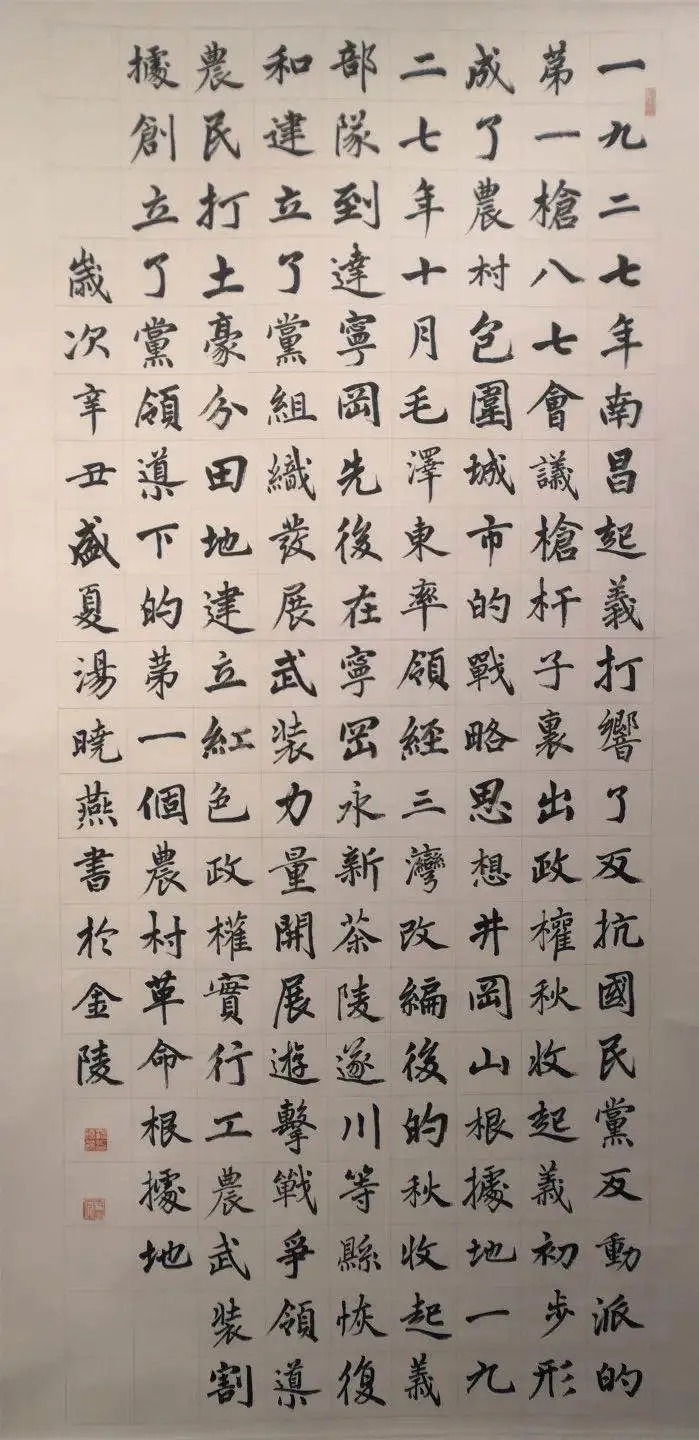 一九二七年南昌起義打響了反抗國民黨反動派的
第一槍八七會議槍杆子裏出政權秋收起義初步形
成了農村包圍城市的戰略思想井岡山根據地一九
二七年十月毛澤東率領經三灣改編後的秋收起義
部隊到達寧岡先後在寧岡永新茶陵遂川等縣恢復
和建立了黨組織發展武装力量開展遊擊戰爭領導
農民打土豪分田地建立紅色政權實行工農武装割
據創立了黨領導下的第一個農村革命根據地
歲次辛丑盛夏湯曉燕書於金陵